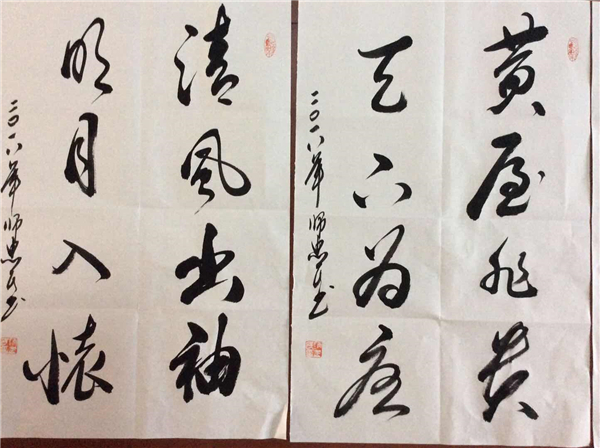 黄屋非贵
天下为
二〇一八年师忠民书
清風出袖
明月入懷
二〇一八年师忠民书